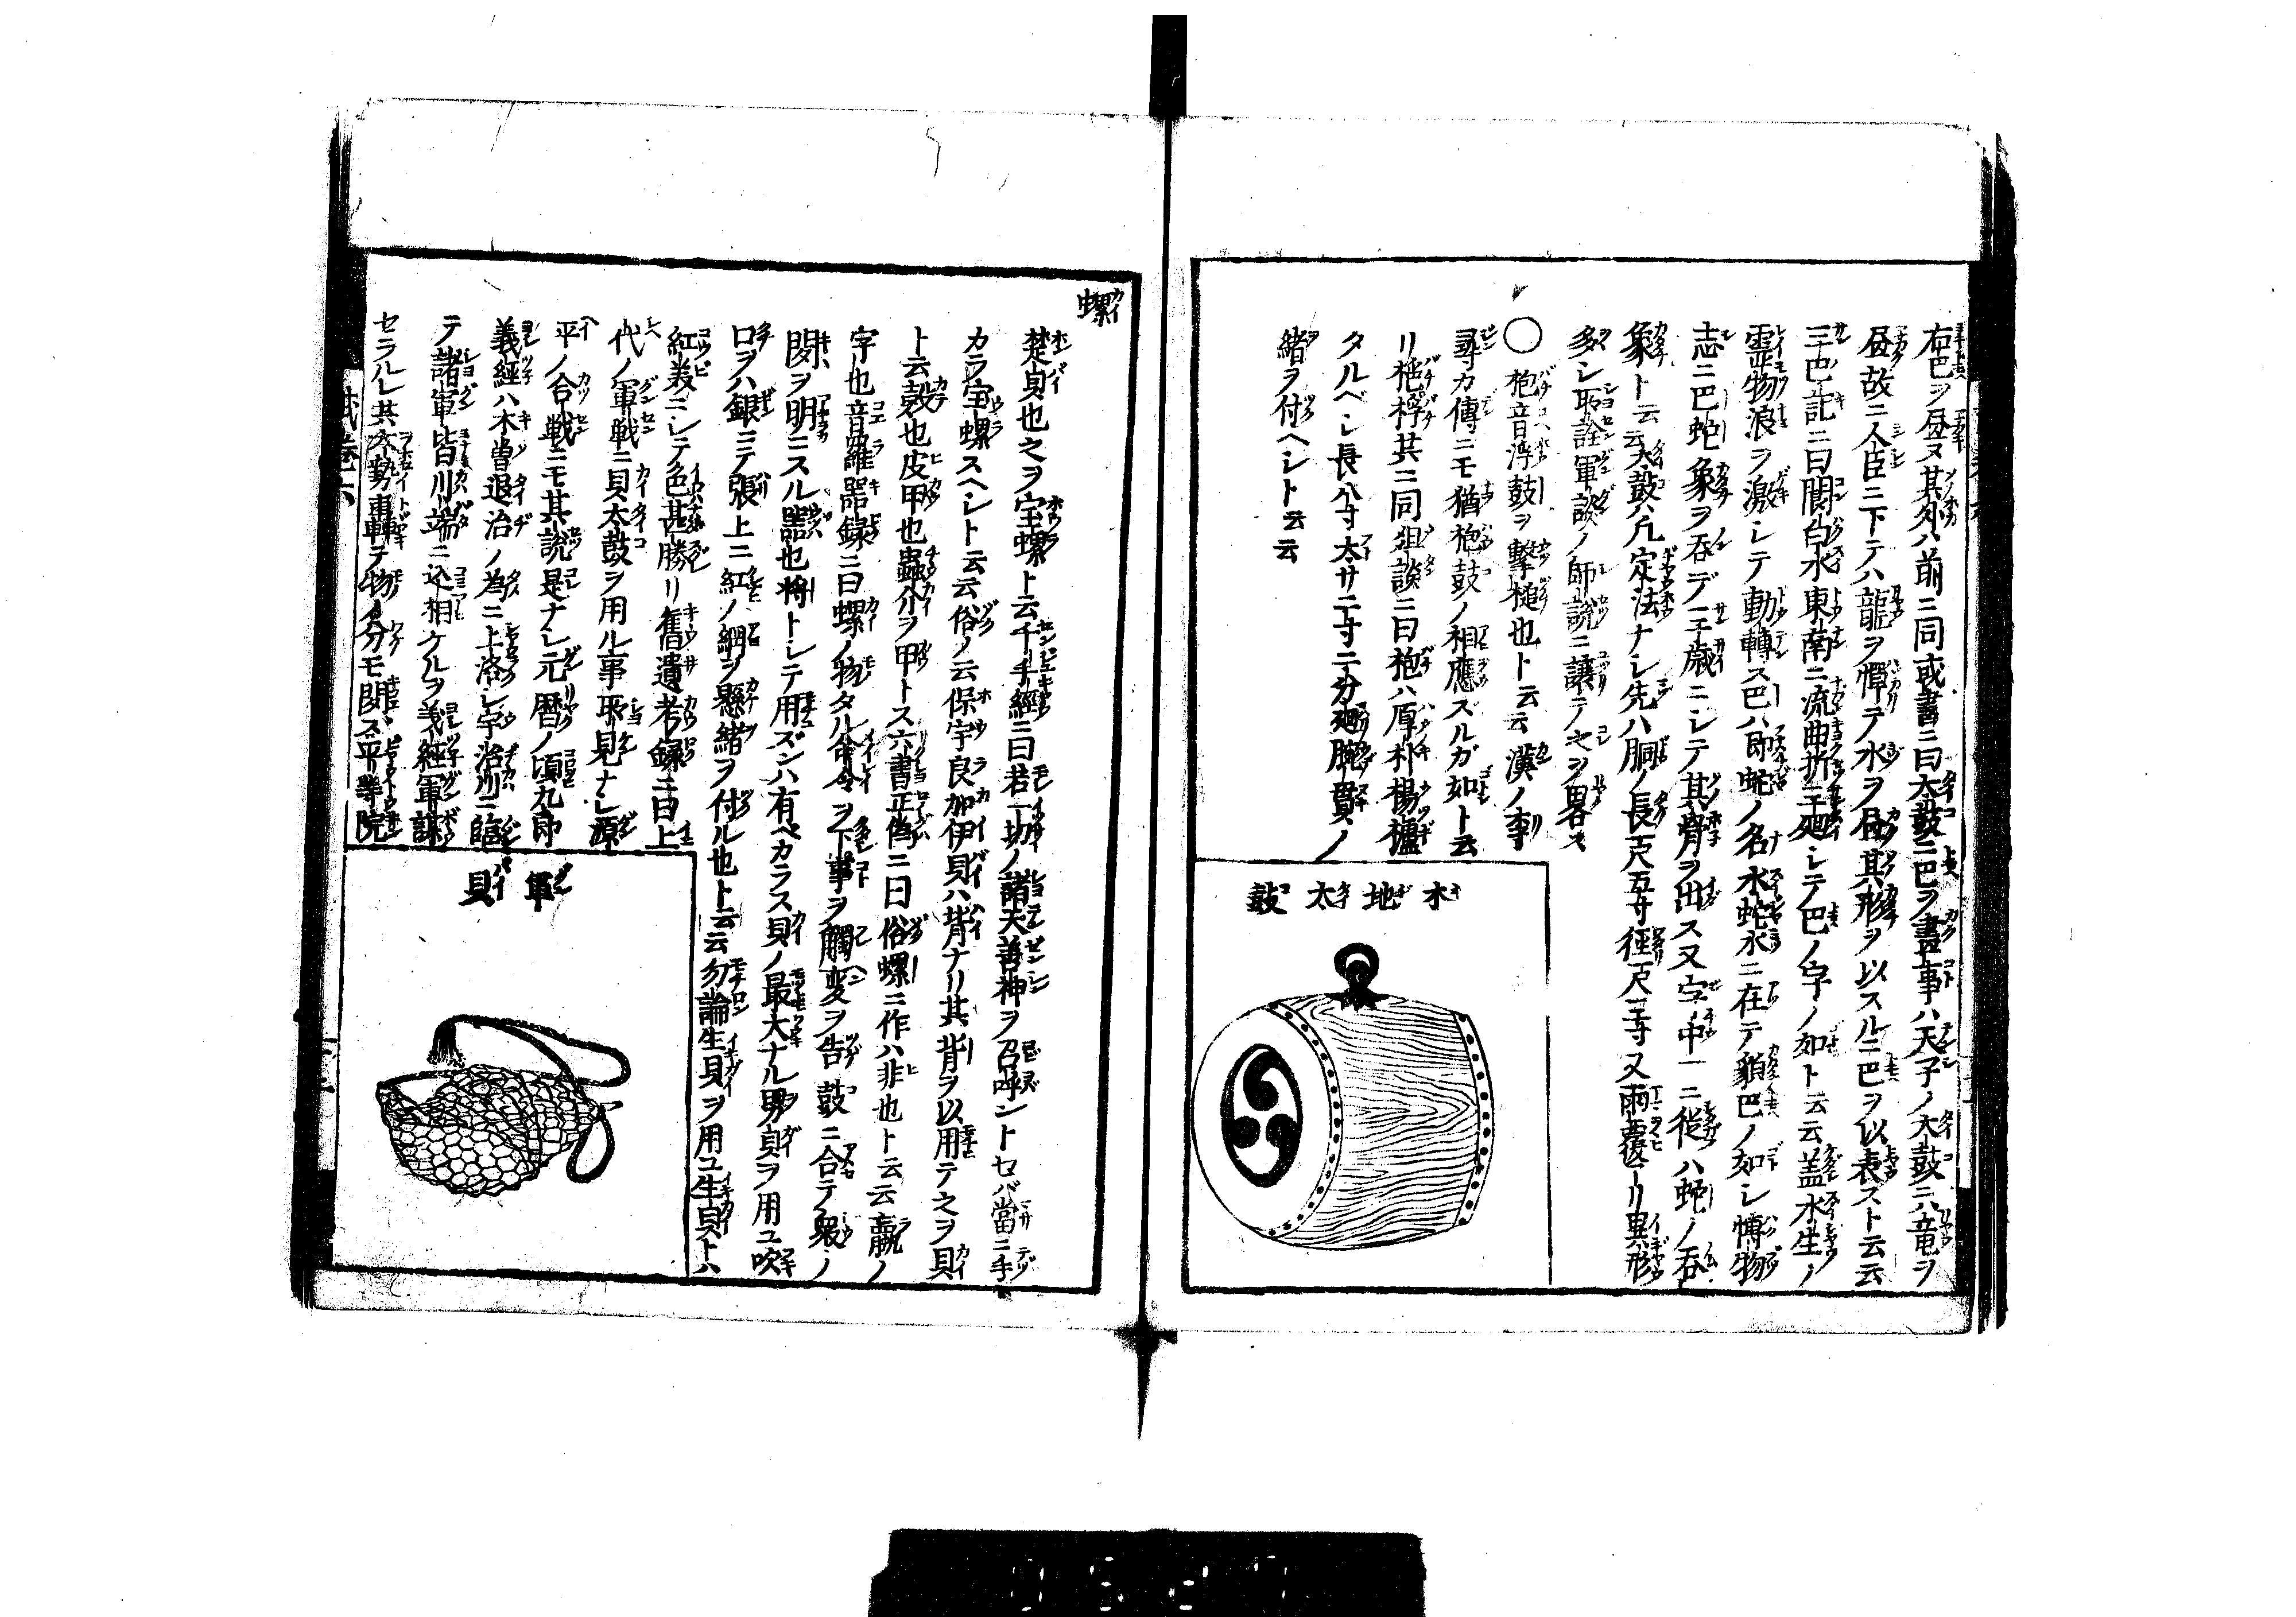 右巴ヲ昼ヌ其外ハ前ニ同或書ニ曰太鼓ニ巴ヲ畫事ハ天子ノ大鼓ニハ竜ヲ
昼故ニ人臣ニ下テハ龍ヲ憚テ水ヲ昼其形ヲ以スルニ巴ヲ以表スト云云
三巴記ニ曰閬白水東南ニ流曲折三廻シテ巴ノ字ノ如ト云云蓋水生ノ
霊物浪ヲ激シテ動轉ス巴ハ即蛇ノ名水蛇水ニ在テ貌巴ノ如シ博物
志ニ巴蛇象ヲ呑デ三歳ニシテ其骨ヲ出ス又字ノ中一ニ従ハ蛇ノ呑
象ト云云大鼓ハ凡定法ナシ先ハ胴ノ長一尺五寸徑一尺三寸又雨覆アリ異形
多シ所詮軍談ノ師説ニ譲テ之ヲ畧ス
◯枹音浮鼓ヲ撃槌也ト云云漢ノ李
尋カ傳ニモ猶枹鼓ノ相應スルガ如ト云
リ枹桴其ニ同俎談ニ曰枹ハ厚朴楊櫨
タルベシ長八寸太サ二寸二分廻腕貫ノ
緒ヲ付ヘシト云云
木地太鼓
螺
梵貝也之ヲ宝螺ト云千手經ニ曰若一切ノ諸天善神ヲ召呼ントセバ當ニ手
カラ宝螺スヘシト云云俗ノ云保宇良加伊貝ハ背ナリ其背ヲ以用テ之ヲ貝
ト云殻也皮甲也蟲介ヲ甲トス六書正譌ニ曰俗螺ニ作ハ非也ト云云蠃ノ
字也音羅噐録ニ曰螺ノ物タル命令ヲ下事ヲ觸変ヲ告鼓ニ合テ衆ノ
聞ヲ明ニスル噐也将トシテ用ズンハ有ベカラス貝ノ最大ナル男貝ヲ用ユ吹
口ヲハ銀ニテ張上ニ紅ノ網ヲ懸緒ヲ付ル也ト云云勿論生貝ヲ用ユ生貝トハ
紅美ニシテ色甚勝リ舊遺考録ニ曰上
代ノ軍戦ニ貝太鼓ヲ用ル事所見ナシ源
平ノ合戦ニモ其説是ナシ元暦ノ頃九郎
義經ハ木曽退治ノ為ニ上洛シ宇治川ニ臨
テ諸軍皆川端ニ込相ケルヲ義經軍謀
セラルレ共大勢車轟テ物ノ分モ聞ス平等院
軍貝